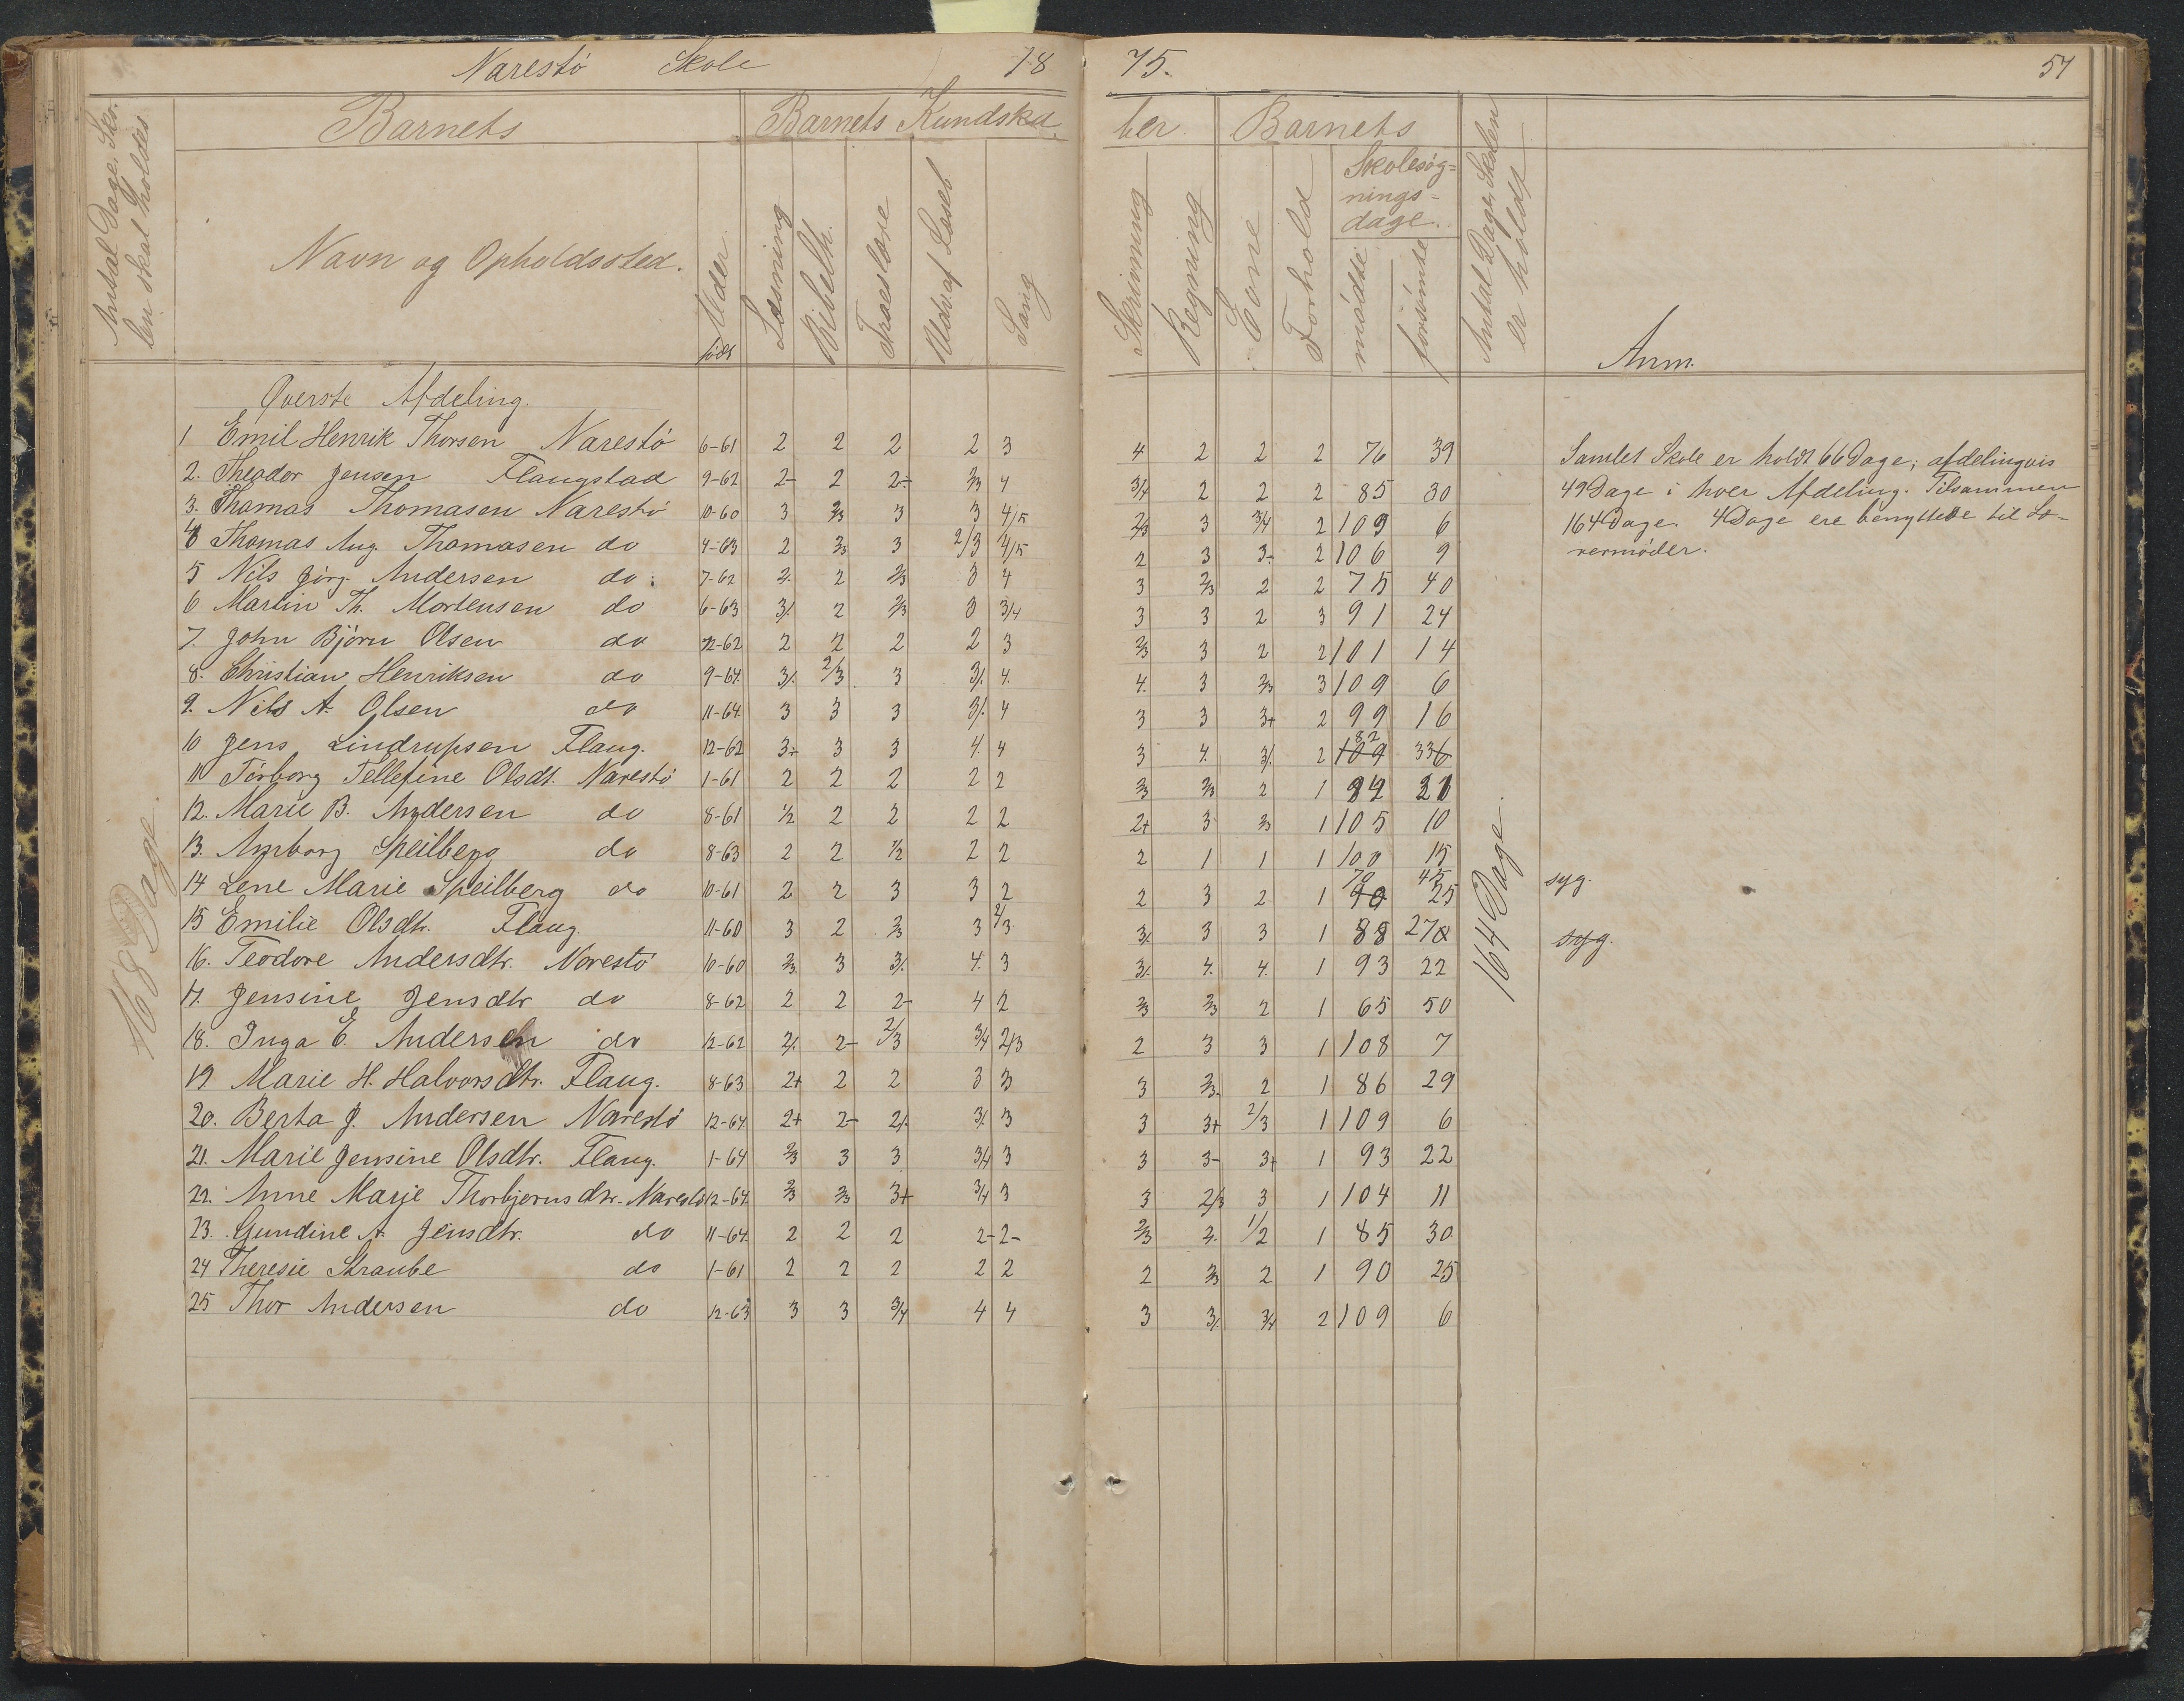 Narestö Skole 18 75. 51
Antal Dage, Sko-
len skal holdes
Barnets
Barnets Kundska
ber.
Barnets
Navn og Opholdssted.
Alder
født
Læsning
Bibelh.
Troeslære
Udv. af Læseb.
Sang
Skrivning
Regning
Evne
Forhold
Skolesøg-
nings-
dage.
mødte
forsømte
Antal Dage, Skolen
er holdt
Anm.
Øverste Afdeling.
1 Emil Henrik Thorsen Narestö 6-61 2 2 2 2 3 4 2 2 2 76 39
2. Theodor Jensen Flangstad 9-62 2- 2 2÷ 2/3 4 3/4 2 2 2 85 30
3. Thomas Thomasen Narestö 10-60 3 2/3 3 3 4/5 2/3 3 3/4 2 109 6
4 Thomas Aug. Thomasen do 4-63 2 2/3 3 2/3 4/5 2 3 3- 2 106 9
5 Nils Jörg. Andersen do. 7-62 2. 2 2/3 3 4 3 2/3 2 2 75 40
6 Martin Th. Mortensen do 6-63 3/. 2 2/3 3 3/4 3 3 2 3 91 24
7. John Björn Olsen do 12-62 2 2 2 2 3 2/3 3 2 2 101 14
8. Christian Henriksen do 9-64. 3/. 2/3 3 3/. 4. 4. 3 2/3 3 109 6
9. Nils A. Olsen do 11-64. 3 3 3 3/. 4 3 3 3+ 2 99 16
10 Jens Lindrupsen Flang. 12-62 3÷ 3 3 4. 4 3 4. 3/. 2 109 82 336
11 Törborg Tellefine Olsdt. Narestö 1-61 2 2 2 2 2 2/3 2/3 2 1 94 21
12. Marie B. Andersen do 8-61 1/2 2 2 2 2 2+ 3 2/3 1 105 10
13. Anborg Speilberg do 8-63 2 2 1/2 2 2 2 1 1 1 100 15
14 Lene Marie Speilberg do 10-61 2 2 3 3 2 2 3 2 1 90 70 25 45 syg.
15 Emilie Olsdtr. Flang. 11-60 3 2 2/3 3 2/3 3/. 3 3 1 88 27 syg.
16. Teodore Andersdtr. Narestö 10-60 2/3. 3 3/. 4. 3 3/. 4. 4. 1 93 22
17. Jensine Jensdtr do 8-62 2 2 2- 4 2 2/3 2/3 2 1 65 50
18. Inga E. Andersen do 12-62 2/. 2- 2/3 3/4 2/3 2 3 3 1 108 7
19 Marie H. Halvorsdtr. Flang. 8-63 2+ 2 2 3 3 3 2/3. 2 1 86 29
20. Berta J. Andersen Narestö 12-64. 2+ 2- 2/. 3/. 3 3 3+ 2/3 1 109 6
21. Marie Jensine Olsdtr. Flang. 1-64 2/3 3 3 3/4 3 3 3- 3+ 1 93 22
22. Anne Marje Thorbjernsdtr. Narestö 12-64. 2/3 2/3 3+ 3/4 3 3 2/3 3 1 104 11
23. Gundine A. Jensdtr. do 11-64. 2 2 2 2- 2- 2/3 2. 1/2 1 85 30
24 Theresie Straube do 1-61 2 2 2 2 2 2 2/3 2 1 90 25
25 Thor Andersen do 12-63 3 3 3/4 4 4 3 3/. 3/4 2 109 6
168 Dage.
164 Dage.
Samlet Skole er holdt 66 Dage; afdelingvis
49 Dage i hver Afdeling. Tilsammen
164 Dage. 4 Dage ere benyttede til Læ-
rermöder.